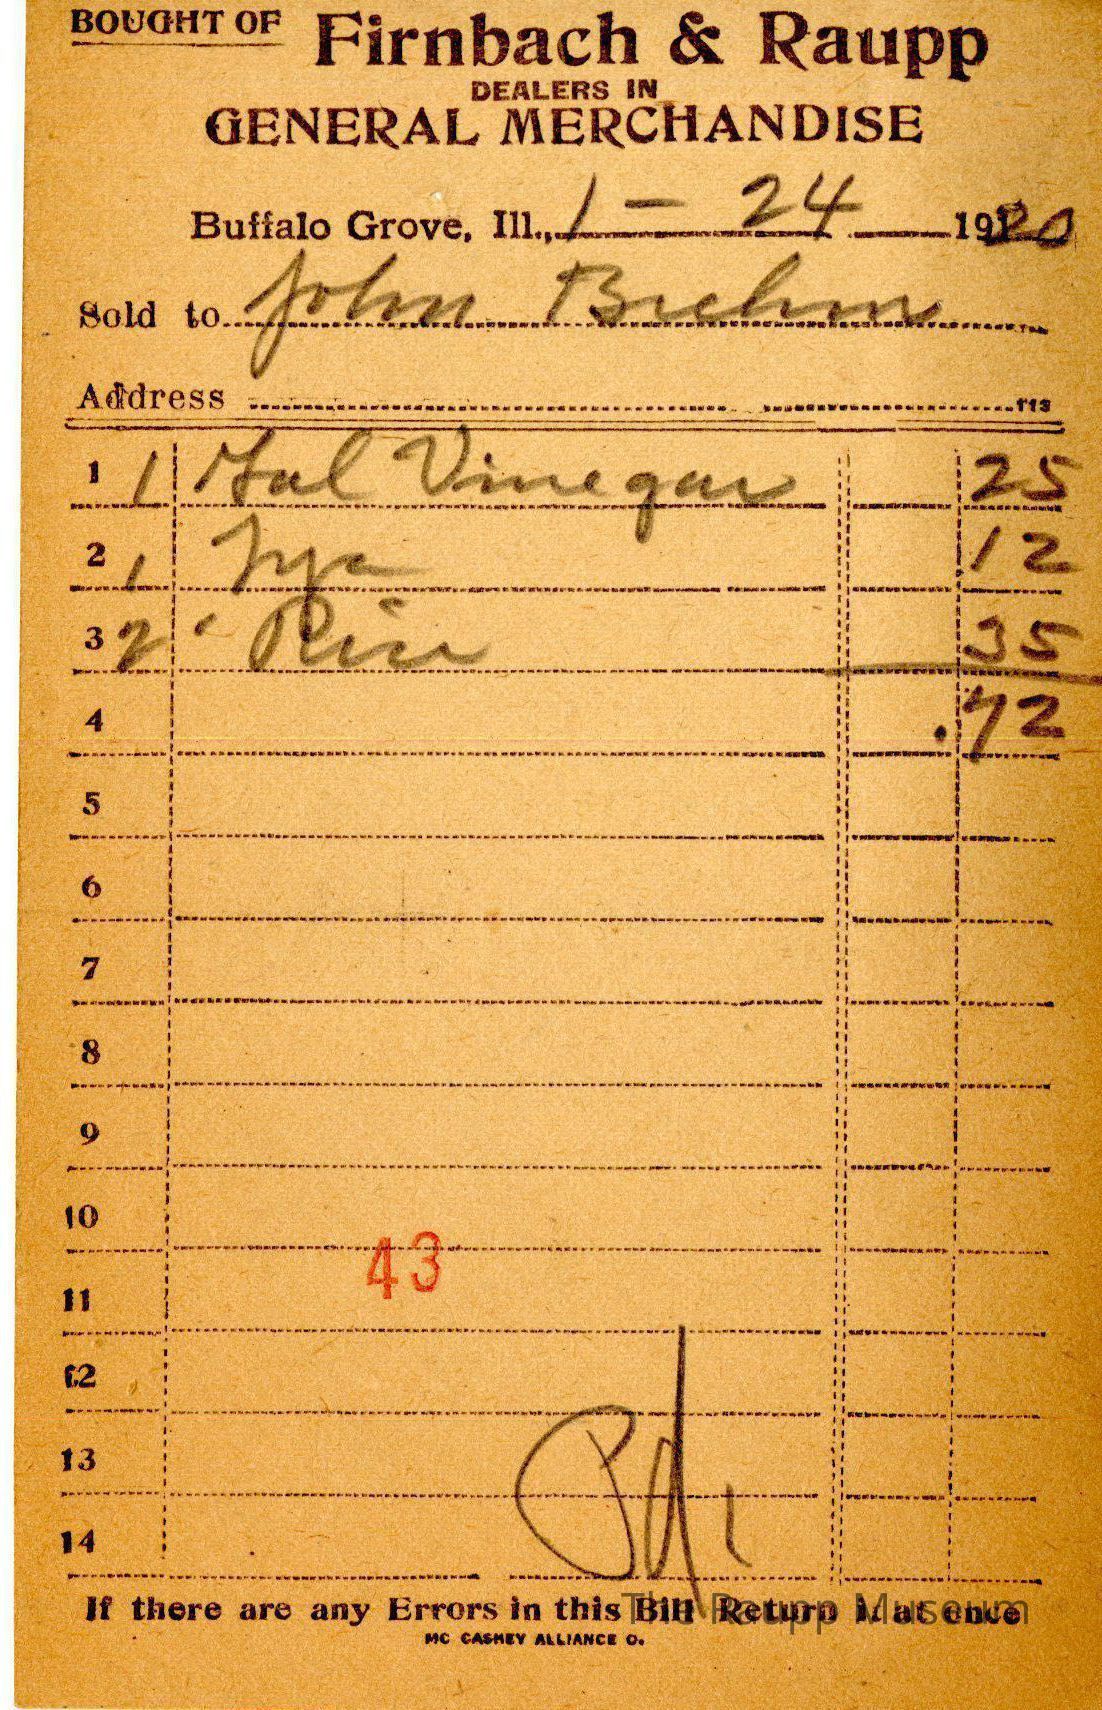 BOUGHT OF Firnbach & Raupp
DEALERS IN
GENERAL MERCHANDISE
Buffalo Grove, Ill., 1 - 24 1920
Sold to John Brehm
Address 113
1 1 Gal Vinegar 25
2 1 12
3 2 Rice 35
4 .72
5
6
7
8
9
10
43
11
12
13
Pd
14
If there are any Errors in this Bill Return it at once
The Raupp Museum
MC CASKEY ALLIANCE O.